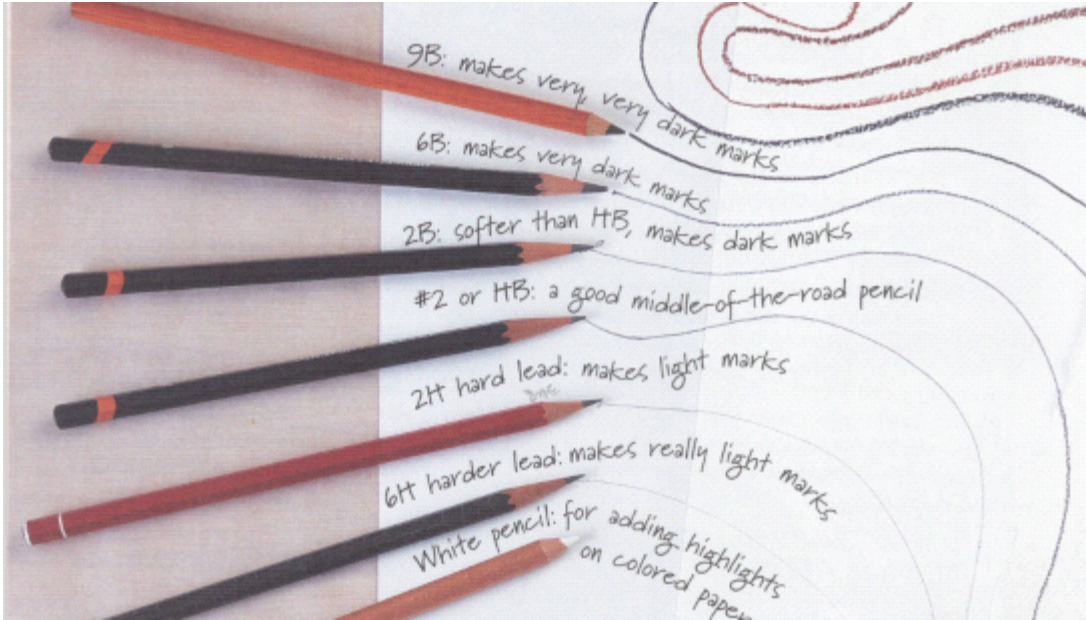 9B: makes very, very dark marks
6B: makes very dark marks
2B: softer than HB, makes dark marks
#2 or HB: a good middle-of-the-road pencil
2H hard lead: makes light marks
6H harder lead: makes really light marks
White pencil: for adding highlights
on colored paper